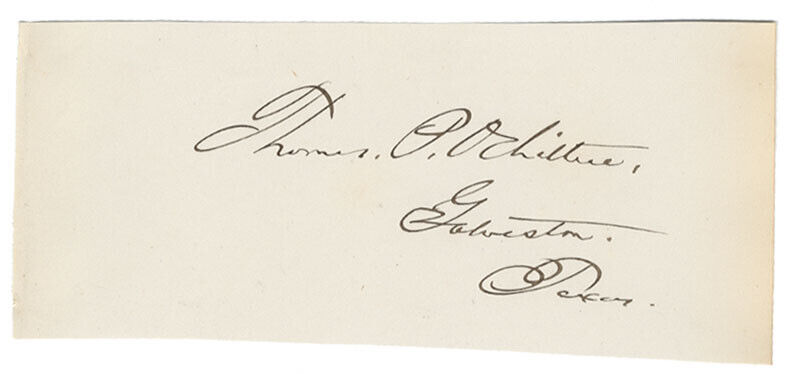 Thomas. P. Ochiltree,
Galveston.
Texas.